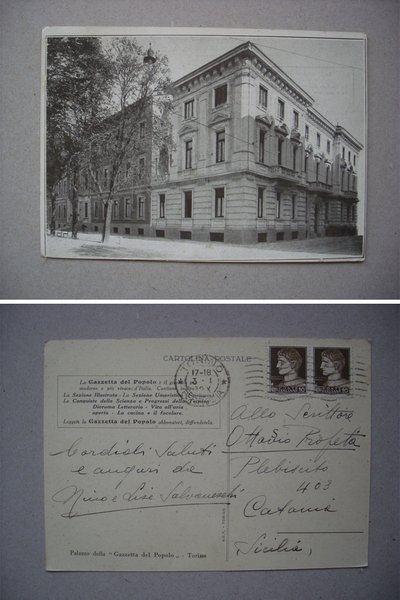 CARTOLINA POSTALE
La Gazzetta del Popolo è il
moderno e più vivace d'Italia. Contiene
La Sezione Illustrata - La Sezione Umoristica
Le Conquiste della Scienza e Progressi della
Diorama Letterario - Vita all'aria
aperta - La cucina e il focolare.
Leggete la Gazzetta del Popolo abbonatevi, diffondetela.
TORINO
17-18
3. I
Cordiali Saluti
e auguri da
Nino e Lise Salvaneschi
Allo Scrittore
Ottavio Profeta
Plebiscito
403
Catania
Sicilia,
Palazzo della "Gazzetta del Popolo" - Torino